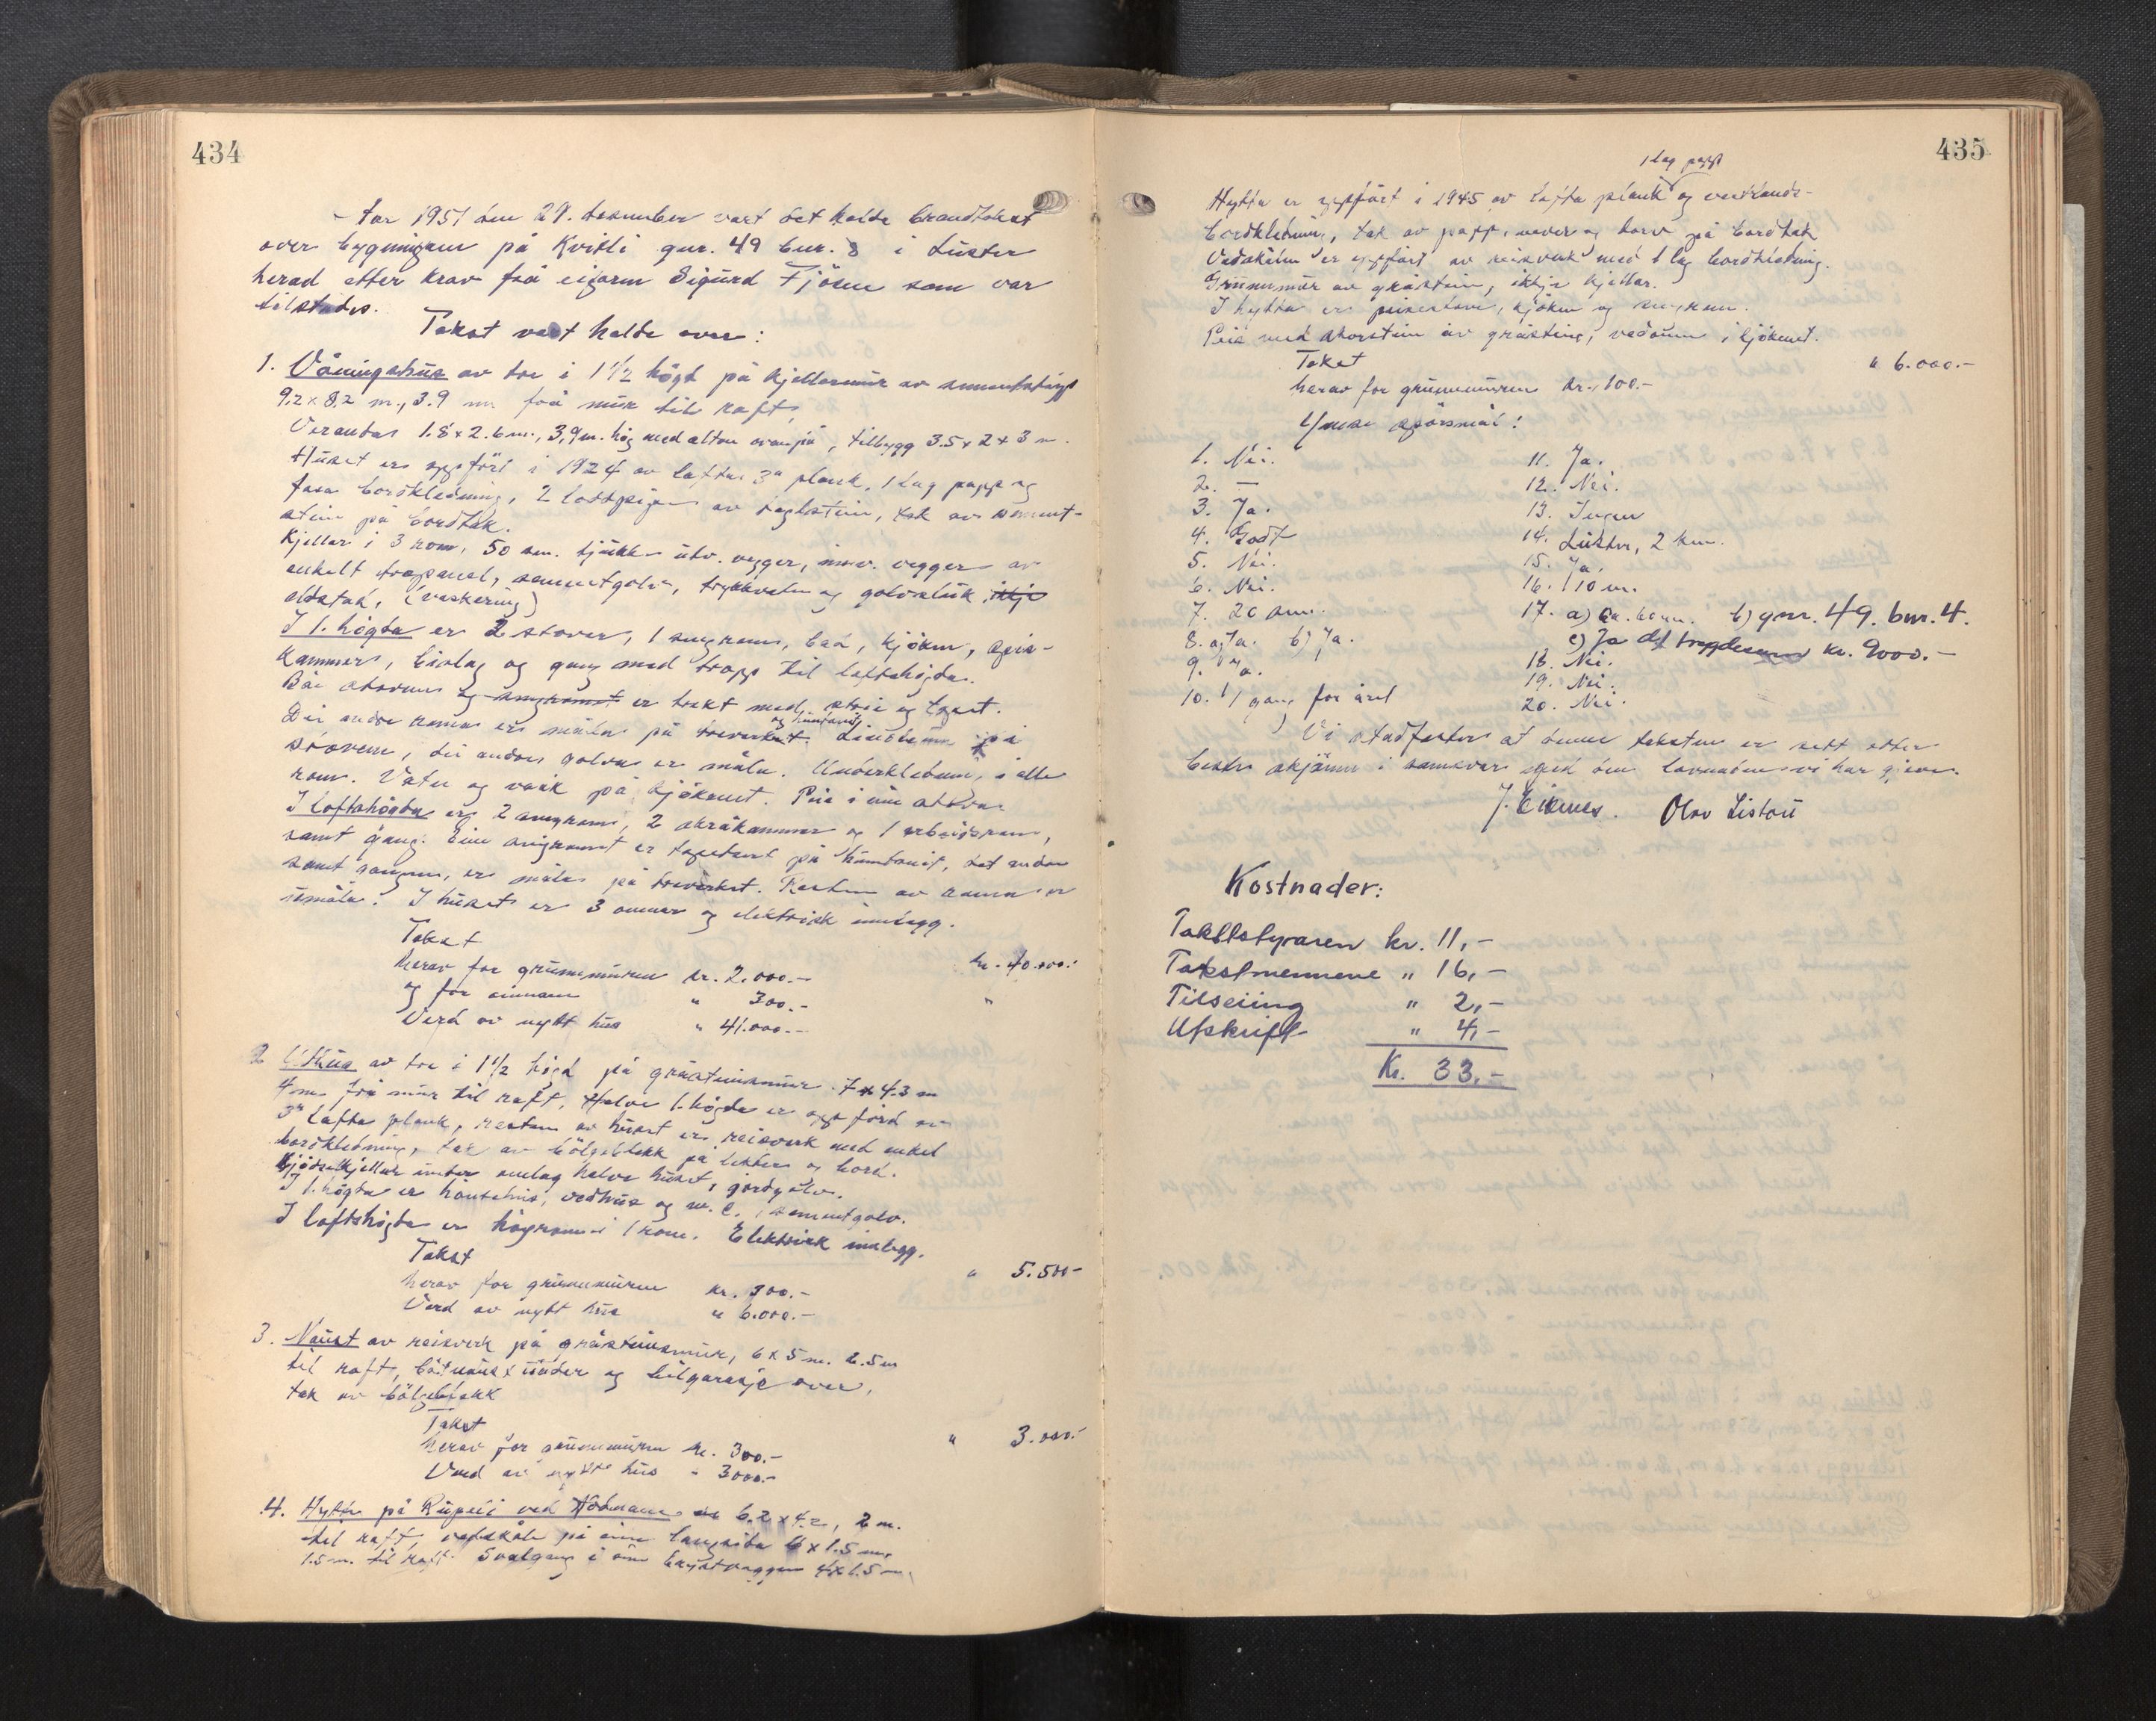 434
- År 1951 den 29. desember vart det halde brandtakst
over bygningane på Kvitli gnr. 49 bnr. 8 i Luster
herad etter krav frå eigaren Sigurd Fjösne som var
tilstades.
Takst vart halde over:
1. Våningshus av tre i 1 1/2 högd på kjellarmur av sementstöyp
9.2 x 8.2 m., 3.9 m. frå mur til raft,
Verandas 1.8 x 2.6 m., 3,9 m. hög med altan ovanpå, tilbygg 3.5 x 2 x 3 m.
Huset er oppfört i 1924 av lafta 3" plank, 1 lag papp og
fasa bordkledning, 2 loddpipor av teglstein, tak av sement-
stein på bordtak.
Kjellar i 3 rom, 50 sm. tjukke utv. vegger, innv. vegger av
enkelt trepanel, sementgolv, trykkvatn og golvsluk, ikkje
eldstad, (vaskering)
I 1. högda er 2 stover, 1 sengrom, bad, kjöken, spis-
kammers, bislag og gang med tropp til loftshögda.
Båe stovene og sengromet er trekt med strie og tapet.
Dei andre romma er måla på treverket og huntonit. Linoleum på
stovene, dei andre golva er måla. Underkledning i alle
rom. Vatn og vask på kjökenet. Peis i ein stova
I loftshögda er 2 sengrom, 2 skråkammer og 1 arbeidsrom,
samt gang. Eine sengromet er tapetsert på huntonit, det andre
samt gangen, er måla på treverket. Resten av romma er
umåla. I huset er 3 omnar og elektrisk innlegg.
Takst kr. 40.000.-
herav for grunnmuren kr. 2.000.-
og for omnane " 300.- "
Verd av nytt hus " 41.000.-
2. Uthus av tre i 1 1/2 högd på gråsteinsmur. 7 x 4.3 m
4 m. frå mur til raft. Halve 1. högda er oppförd av
3" lafta plank, resten av huset er reisverk med enkel
bordkledning, tak av bölgeblekk på lekter og bord.
Gjödselkjellar under omlag halve huset, jordgolv.
I 1. högda er hönsehus, vedhus og w.c., sementgolv.
I loftshögda er högrom i 1 rom. Elektrisk innlegg.
Takst " 5.500-
herav for grunnmuren kr. 300.-
Verd av nytt hus " 6.000.-
3. Naust av reisverk på gråsteinsmur, 6 x 5 m. 2.5 m
til raft, båtnaust under og bilgarasje over,
tak av bölgeblekk
Takst " 3.000.-
herav for grunnmuren kr. 300.-
Verd av nytt hus " 3000.-
4. Hytta på Rupeli ved 6.2 x 4.2, 2 m.
til raft, vedskåle på eine langsida 6 x 1.5 m,
1.5 m. til raft. Svalgang i eine langveggen 4 x 1.5 m.
435
1 lag papp
Hytta er oppfört i 1945 av lafta plank og vestlands-
bordkledning, tak av papp, never og torv på bordtak
Vedskålen er oppfört av reisverk med 1 lag bordkledning.
Grunnmur av gråstein, ikkje kjellar.
I hytta er peisestove, kjöken og sengrom.
Peis med skorstein av gråstein, vedomn i kjökenet.
Takst " 6.000.-
herav for grunnmuren kr. 100.-
Ymse spörsmål:
1. Nei.
2. —
3. Ja.
4. Godt
5. Nei.
6. Nei.
7. 20 sm.
8. a) Ja. b) Ja.
9. Ja.
10. 1 gang for året
11. Ja.
12. Nei.
13. Ingen
14. Luster, 2 km.
15. Ja.
16. 110 m.
17. a) b) gnr. 49. bnr. 4.
c) Ja kr. 9000.-
18. Nei.
19. Nei.
20. Nei.
Vi stadfester at denne taksten er sett etter
beste skjönn i samsvar med den lovnaden vi har gjeve.
J. Eikenes. Olav Liston
Kostnader:
Takststyraren kr. 11,-
Takstmennene " 16,-
Tilseiing " 2,-
Utskrift " 4,-
Kr. 33,-